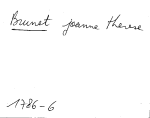 Brunet joanne therese
1786-6